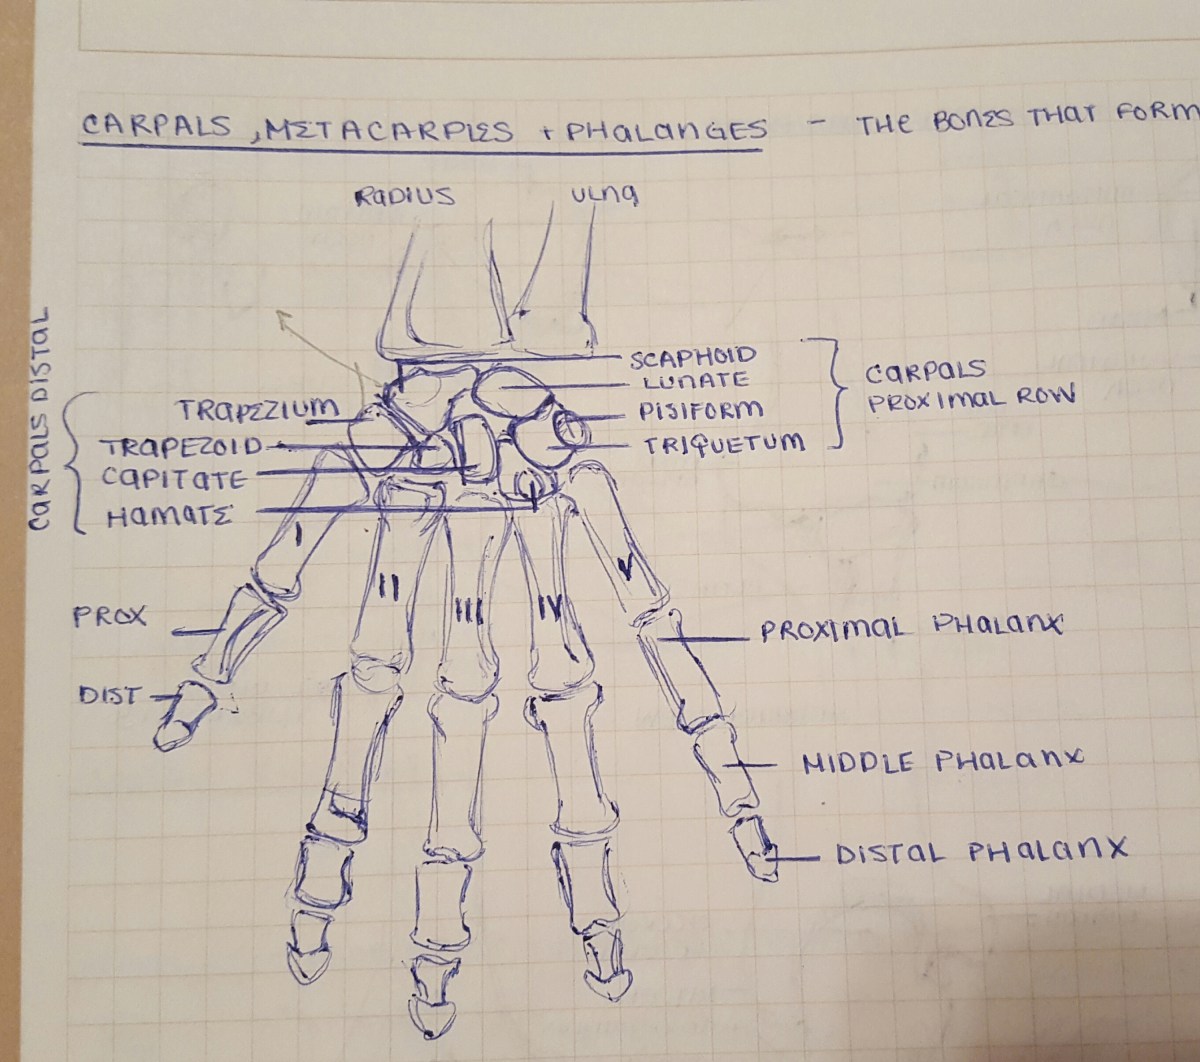 CARPALS, METACARPLES + PHALANGES - THE BONES THAT FORM
RADIUS
ULNA
CARPALS DISTAL
TRAPEZIUM
TRAPEZOID
CAPITATE
HAMATE
SCAPHOID
LUNATE
PISIFORM
TRIQUETUM
CARPALS
PROXIMAL ROW
I
II
III
IV
V
PROX
DIST
PROXIMAL PHALANX
MIDDLE PHALANX
DISTAL PHALANX